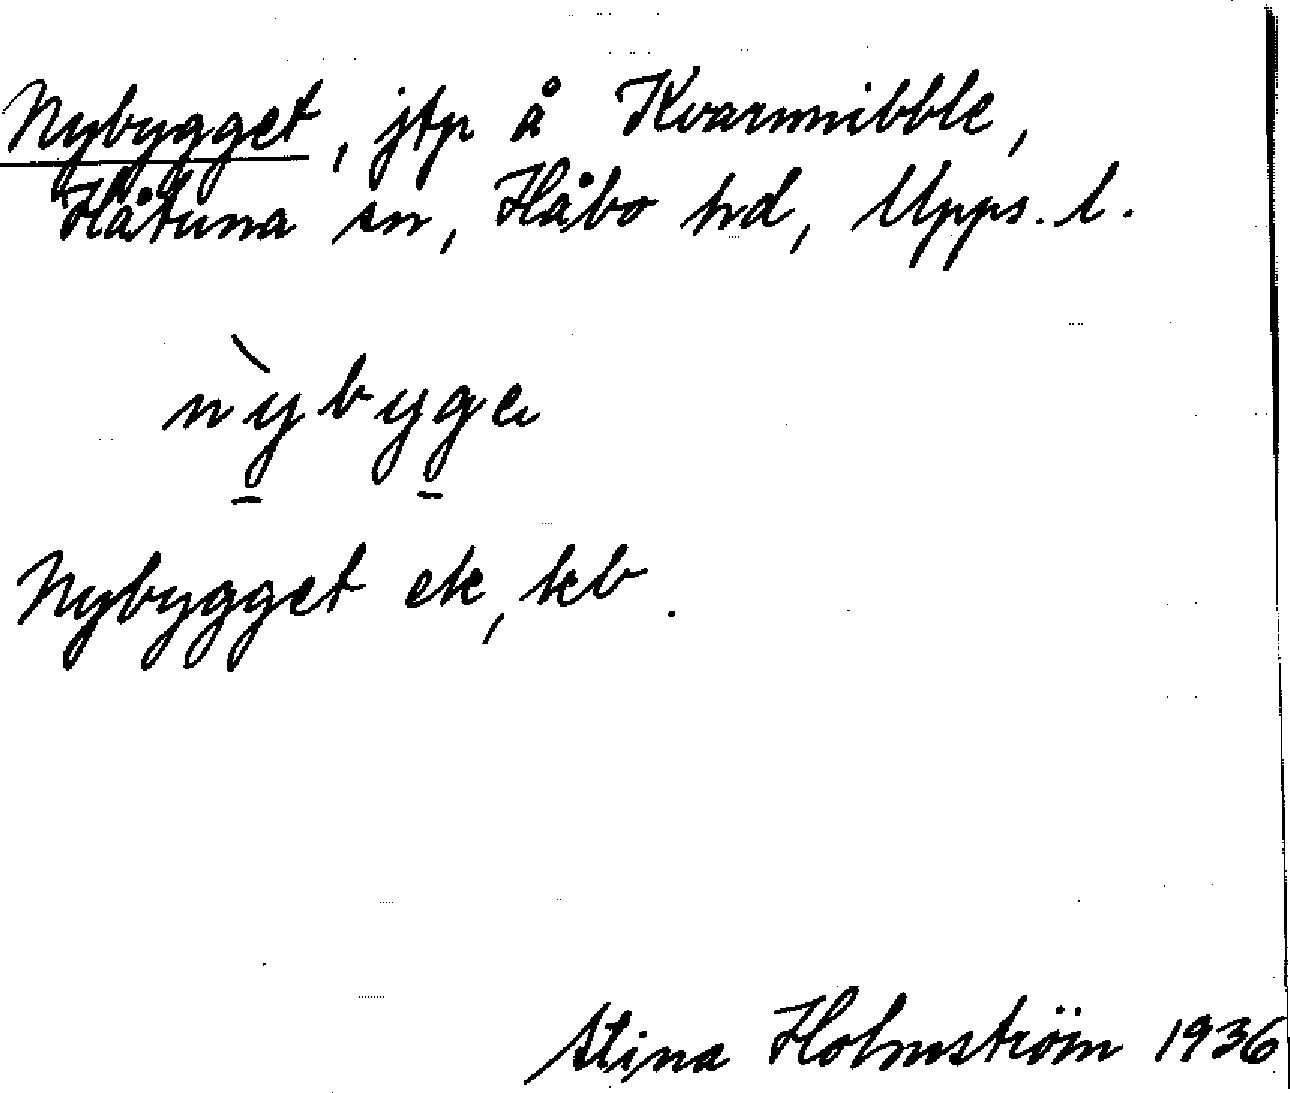 Nybygget, jtp å Kvarnnibble,
Håtuna sn, Håbo hd, Upps. l.
nỳbyge
Nybygget ek, kb.
Stina Holmström 1936